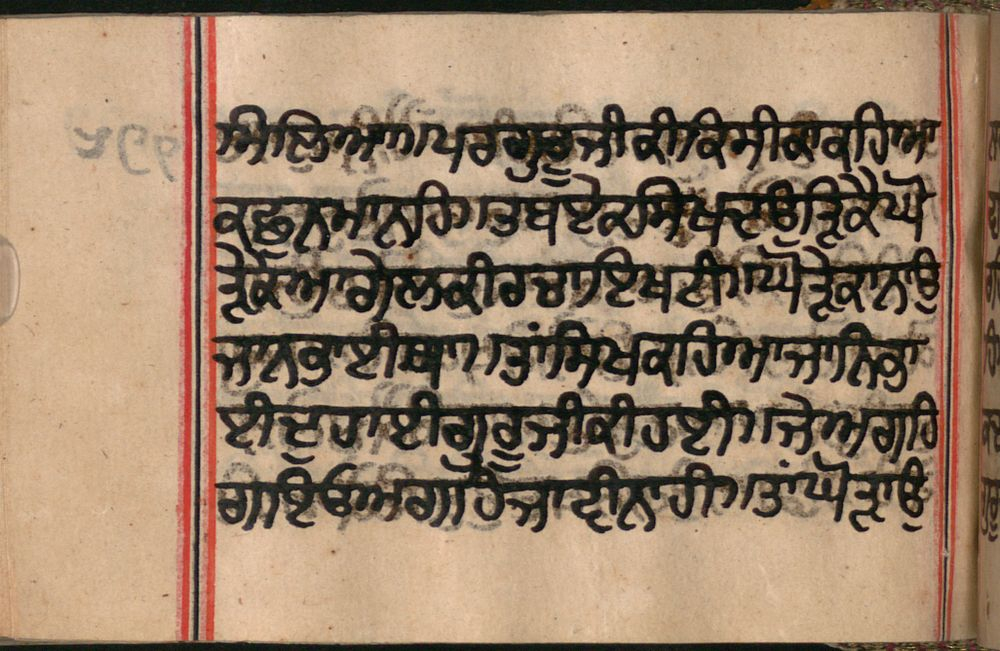 ਮਿਲਿਆ॥ਪਰਗੁਰੂਜੀਕੀਕਿਸੀਕਾਕਹਿਆ
ਕਛੁਨਮਾਨਹਿ॥ਤਬਏਕਸਿਖਦਉੜਿਕੈਘੋ
ੜੇਕੇਆਗੇਲਕੀਰਚਾਇਖਣੀ॥ਘੋੜੇਕਾਨਾਉ
ਜਾਨਭਾਈਥਾ॥ਤਾਂਸਿਖਕਹਿਆਜਾਨਿਭਾ
ਈਦੁਹਾਈਗੁਰੂਜੀਕੀਹਈ॥ਜੇਅਗਹਿ
ਗਇਓਅਗਾਹੇਜਾਣੀਨਾਹੀ॥ਤਾਂਘੋੜਾਉ